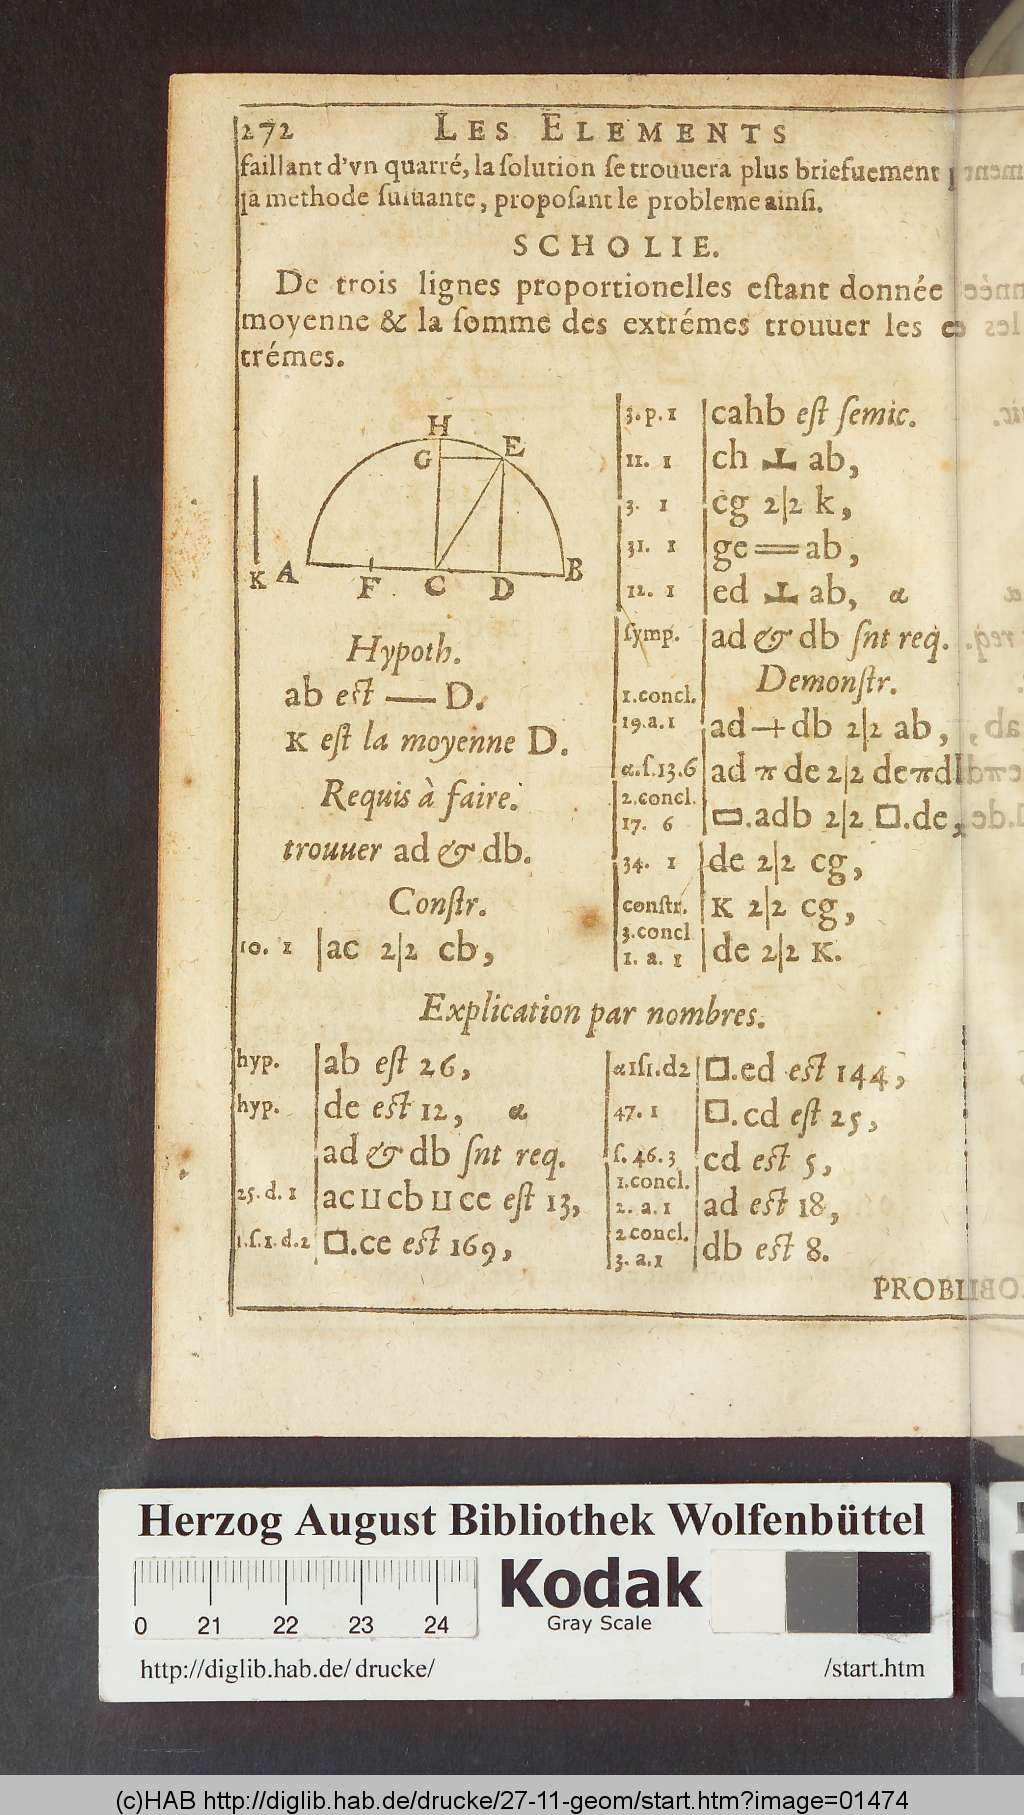 272 LES ELEMENTS
faillant d'vn quarré, la ſolution ſe trouuera plus briefuement
la methode ſuiuante, propoſant le probleme ainſi.
SCHOLIE.
De trois lignes proportionelles eſtant donnée
moyenne & la ſomme des extrémes trouuer les
trémes.
H
G E
K A F C D B
Hypoth.
ab eſt — D.
K eſt la moyenne D.
Requis à faire.
trouuer ad & db.
Conſtr.
10. 1 | ac 2|2 cb,
3. p. 1 | cahb eſt ſemic.
11. 1 | ch ⊥ ab,
3. 1 | cg 2|2 k,
31. 1 | ge == ab,
12. 1 | ed ⊥ ab, α
ſymp. | ad & db ſnt req.
Demonſtr.
1.concl.
19.a.1 | ad + db 2|2 ab,
α.ſ.13.6 | ad π de 2|2 de π db
2.concl.
17. 6 | ▭.adb 2|2 □.de,
34. 1 | de 2|2 cg,
conſtr. | K 2|2 cg,
3.concl
1. a. 1 | de 2|2 K.
Explication par nombres.
hyp. | ab eſt 26,
hyp. | de eſt 12, α
ad & db ſnt req.
25. d. 1 | ac ⊔ cb ⊔ ce eſt 13,
1.ſ.1.d.2 | □.ce eſt 169,
α1ſ1.d2 | □.ed eſt 144,
47. 1 | □.cd eſt 25,
ſ. 46. 3 | cd eſt 5,
1.concl.
2. a. 1 | ad eſt 18,
2concl.
3. a.1 | db eſt 8.
PROBL
Herzog August Bibliothek Wolfenbüttel
Kodak
Gray Scale
0 21 22 23 24
http://diglib.hab.de/ drucke/ /start.htm
(c)HAB http://diglib.hab.de/drucke/27-11-geom/start.htm?image=01474